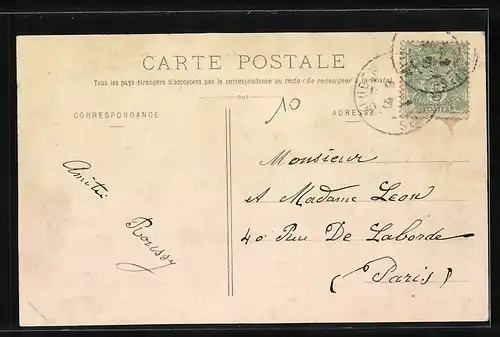 CARTE POSTALE
Tous les pays étrangers n'acceptent pas la correspondance au recto (Se renseigner à la Poste)
10
CORRESPONDANCE
ADRESSE
Monsieur
et Madame Leon
40 Rue De Laborde
(Paris)
Amitié
Roussy